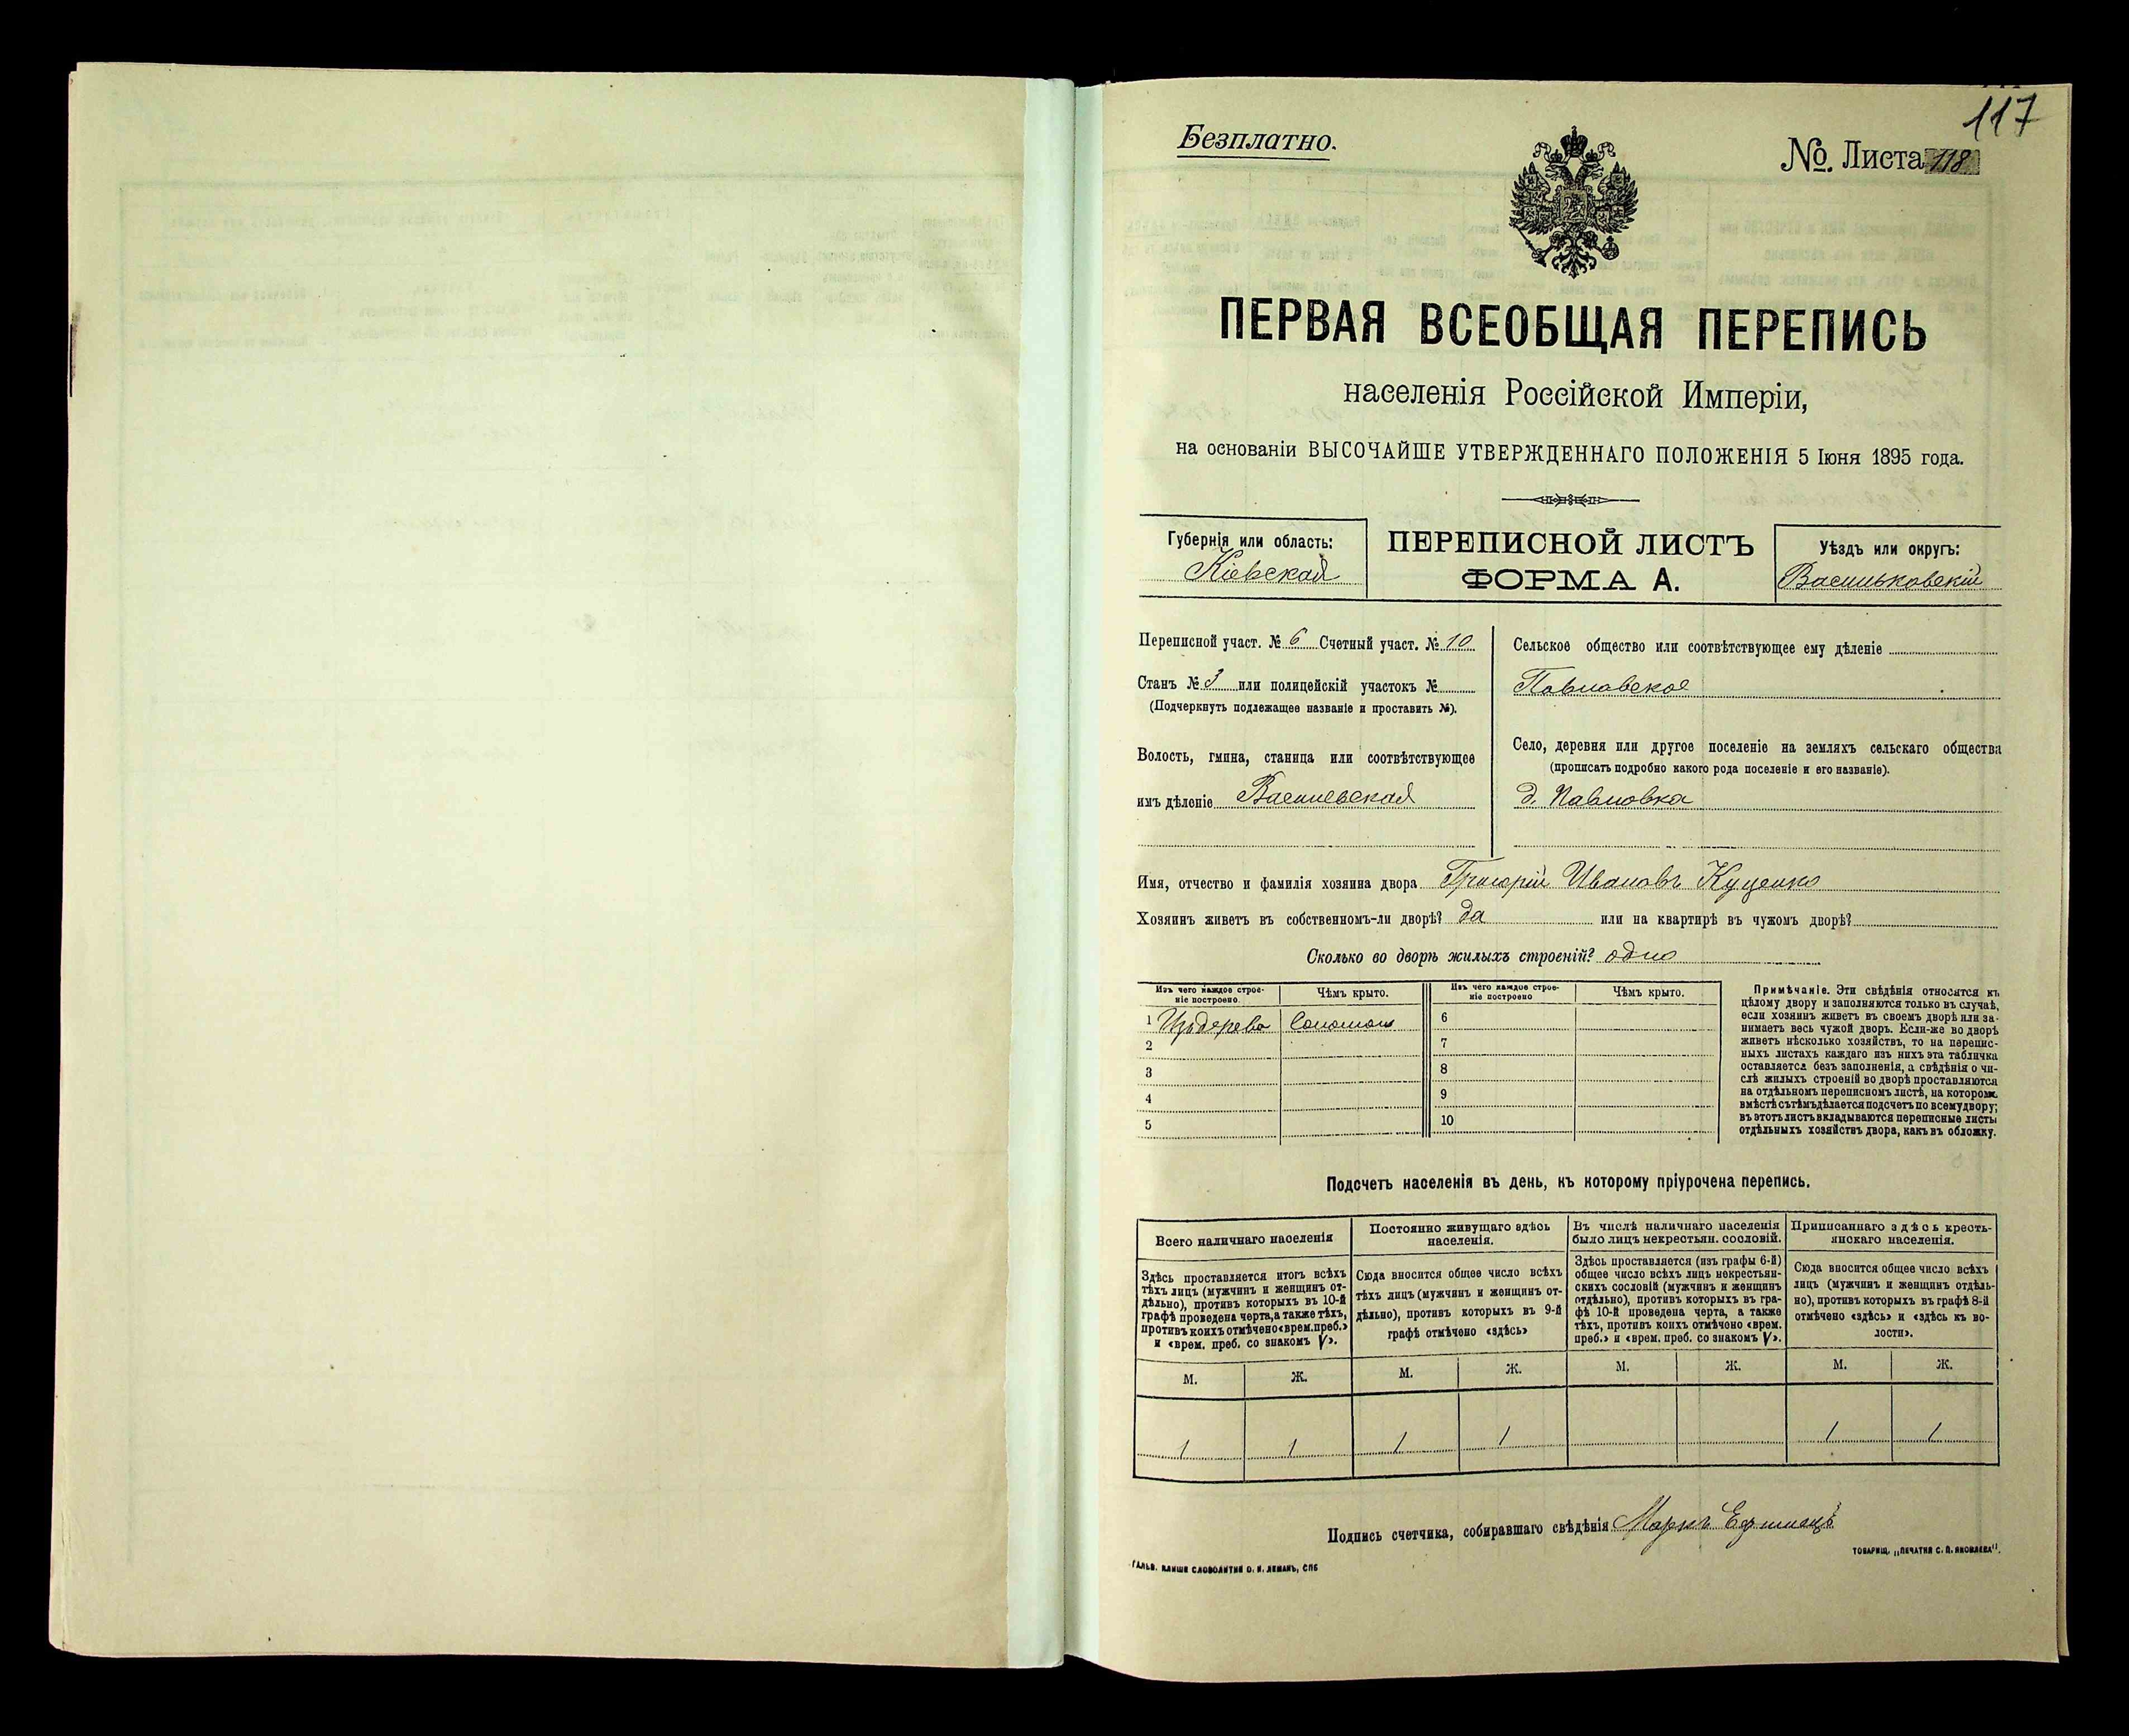 117
Безплатно.
№. Листа 118
ПЕРВАЯ ВСЕОБЩАЯ ПЕРЕПИСЬ
населенія Россійской Имперіи,
на основаніи ВЫСОЧАЙШЕ УТВЕРЖДЕННАГО ПОЛОЖЕНІЯ 5 Іюня 1895 года.
Губернія или область:
Кіевская
ПЕРЕПИСНОЙ ЛИСТЪ
ФОРМА А.
Уѣздъ или округъ:
Васильковскій
Переписной участ. № 6 Счетный участ. № 10
Станъ № 3 или полицейскій участокъ №
(Подчеркнуть подлежащее названіе и проставить №).
Волость, гмина, станица или соотвѣтствующее
имъ дѣленіе Василевская
Сельское общество или соотвѣтствующее ему дѣленіе
Павловское
Село, деревня или другое поселеніе на земляхъ сельскаго общества
(прописать подробно какого рода поселеніе и его названіе).
д. Павловка
Имя, отчество и фамилія хозяина двора Григорій Ивановъ Куценко
Хозяинъ живетъ въ собственномъ-ли дворѣ? да или на квартирѣ въ чужомъ дворѣ?
Сколько во дворѣ жилыхъ строеній? одно
Изъ чего каждое строе-
ніе построено.
Чѣмъ крыто.
1 Изъ дерева Соломою
2
3
4
5
Изъ чего каждое строе-
ніе построено
Чѣмъ крыто.
6
7
8
9
10
Примѣчаніе. Эти свѣдѣнія относятся къ
цѣлому двору и заполняются только въ случаѣ,
если хозяинъ живетъ въ своемъ дворѣ или за-
нимаетъ весь чужой дворъ. Если-же во дворѣ
живетъ нѣсколько хозяйствъ, то на перепис-
ныхъ листахъ каждаго изъ нихъ эта табличка
оставляется безъ заполненія, а свѣдѣнія о чи-
слѣ жилыхъ строеній во дворѣ проставляются
на отдѣльномъ переписномъ листѣ, на которомъ
вмѣстѣ съ тѣмъ дѣлается подсчетъ по всему двору;
въ этотъ листъ вкладываются переписные листы
отдѣльныхъ хозяйствъ двора, какъ въ обложку.
Подсчетъ населенія въ день, къ которому пріурочена перепись.
Всего наличнаго населенія
Здѣсь проставляется итогъ всѣхъ
тѣхъ лицъ (мужчинъ и женщинъ от-
дѣльно), противъ которыхъ въ 10-й
графѣ проведена черта, а также тѣхъ,
противъ коихъ отмѣчено «врем. преб.»
и «врем. преб. со знакомъ V».
Постоянно живущаго здѣсь
населенія.
Сюда вносится общее число всѣхъ
тѣхъ лицъ (мужчинъ и женщинъ от-
дѣльно), противъ которыхъ въ 9-й
графѣ отмѣчено «здѣсь»
Въ числѣ наличнаго населенія
было лицъ некрестьян. сословій.
Здѣсь проставляется (изъ графы 6-й)
общее число всѣхъ лицъ некрестьян-
скихъ сословій (мужчинъ и женщинъ
отдѣльно), противъ которыхъ въ гра-
фѣ 10-й проведена черта, а также
тѣхъ, противъ коихъ отмѣчено «врем.
преб.» и «врем. преб. со знакомъ V».
Приписаннаго здѣсь кресть-
янскаго населенія.
Сюда вносится общее число всѣхъ
лицъ (мужчинъ и женщинъ отдѣль-
но), противъ которыхъ въ графѣ 8-й
отмѣчено «здѣсь» и «здѣсь къ во-
лости».
М. Ж. М. Ж. М. Ж. М. Ж.
1 1 1 1 1 1
Подпись счетчика, собиравшаго свѣдѣнія Маркъ
ГАЛЬВ. КЛИШЕ СЛОВОЛИТНИ О. И. ЛЕМАНЪ, СПБ
ТОВАРИЩ. „ПЕЧАТНЯ С. П. ЯКОВЛЕВА".